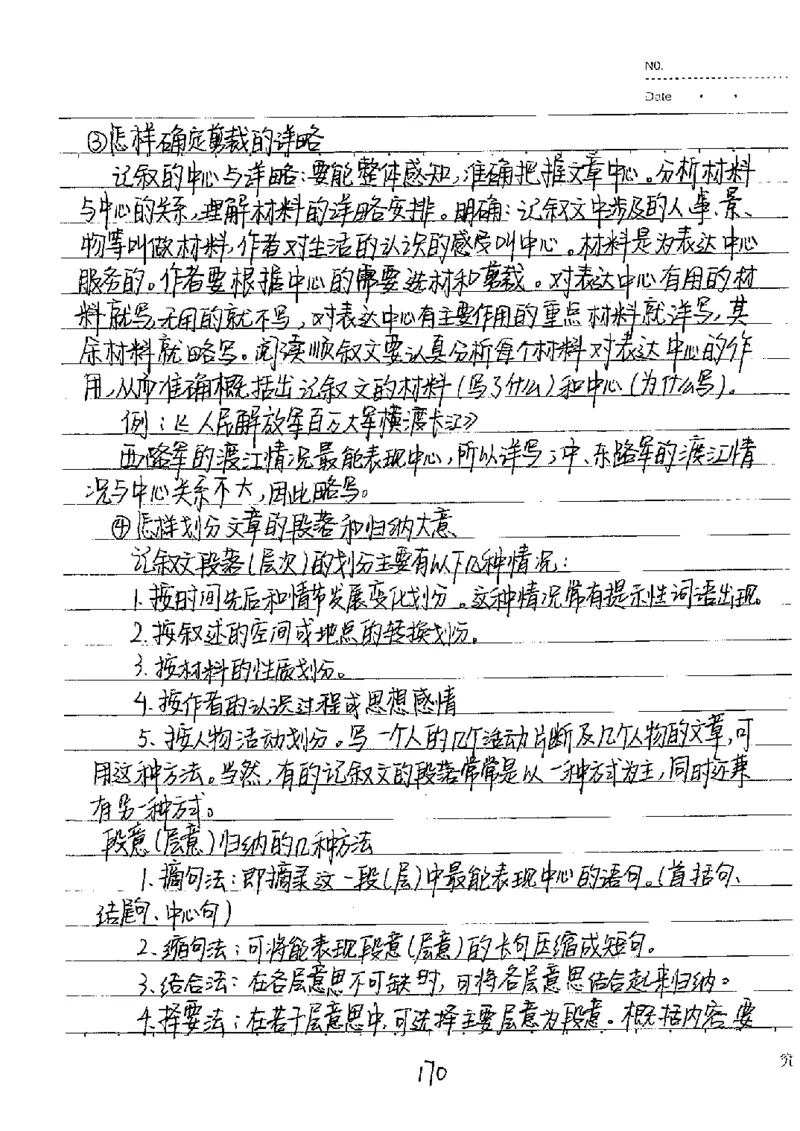 NO.
Date
③怎样确定剪裁的详略
记叙的中心与详略:要能整体感知,准确把握文章中心。分析材料
与中心的关系,理解材料的详略安排。明确:记叙文中涉及的人、事、景、
物等叫做材料,作者对生活的认识的感受叫中心。材料是为表达中心
服务的。作者要根据中心的需要选材和剪裁。对表达中心有用的材
料就写,无用的就不写,对表达中心有主要作用的重点材料就详写,其
余材料就略写。阅读顺叙文要认真分析每个材料对表达中心的作
用,从而准确概括出记叙文的材料(写了什么)和中心(为什么写)。
例:《人民解放军百万大军横渡长江》
西路军的渡江情况最能表现中心,所以详写;中、东路军的渡江情
况与中心关系不大,因此略写。
④怎样划分文章的段落和归纳大意、
记叙文段落(层次)的划分主要有以下几种情况:
1.按时间先后和情节发展变化划分。这种情况常有提示性词语出现。
2.按叙述的空间或地点的转换划分。
3.按材料的性质划分。
4.按作者的认识过程或思想感情
5、按人物活动划分。写一个人的几个活动片断及几个人物的文章,可
用这种方法。当然,有的记叙文的段落常常是以一种方式为主,同时还兼
有另一种方式。
段意(层意)归纳的几种方法
1.摘句法:即摘录这一段(层)中最能表现中心的语句。(首括句、
结尾句、中心句)
2.缩句法:可将能表现段意(层意)的长句压缩成短句。
3.结合法:在各层意思不可缺时,可将各层意思结合起来归纳。
4.择要法:在若干层意思中,可选择主要层意为段意。概括内容要
究
170